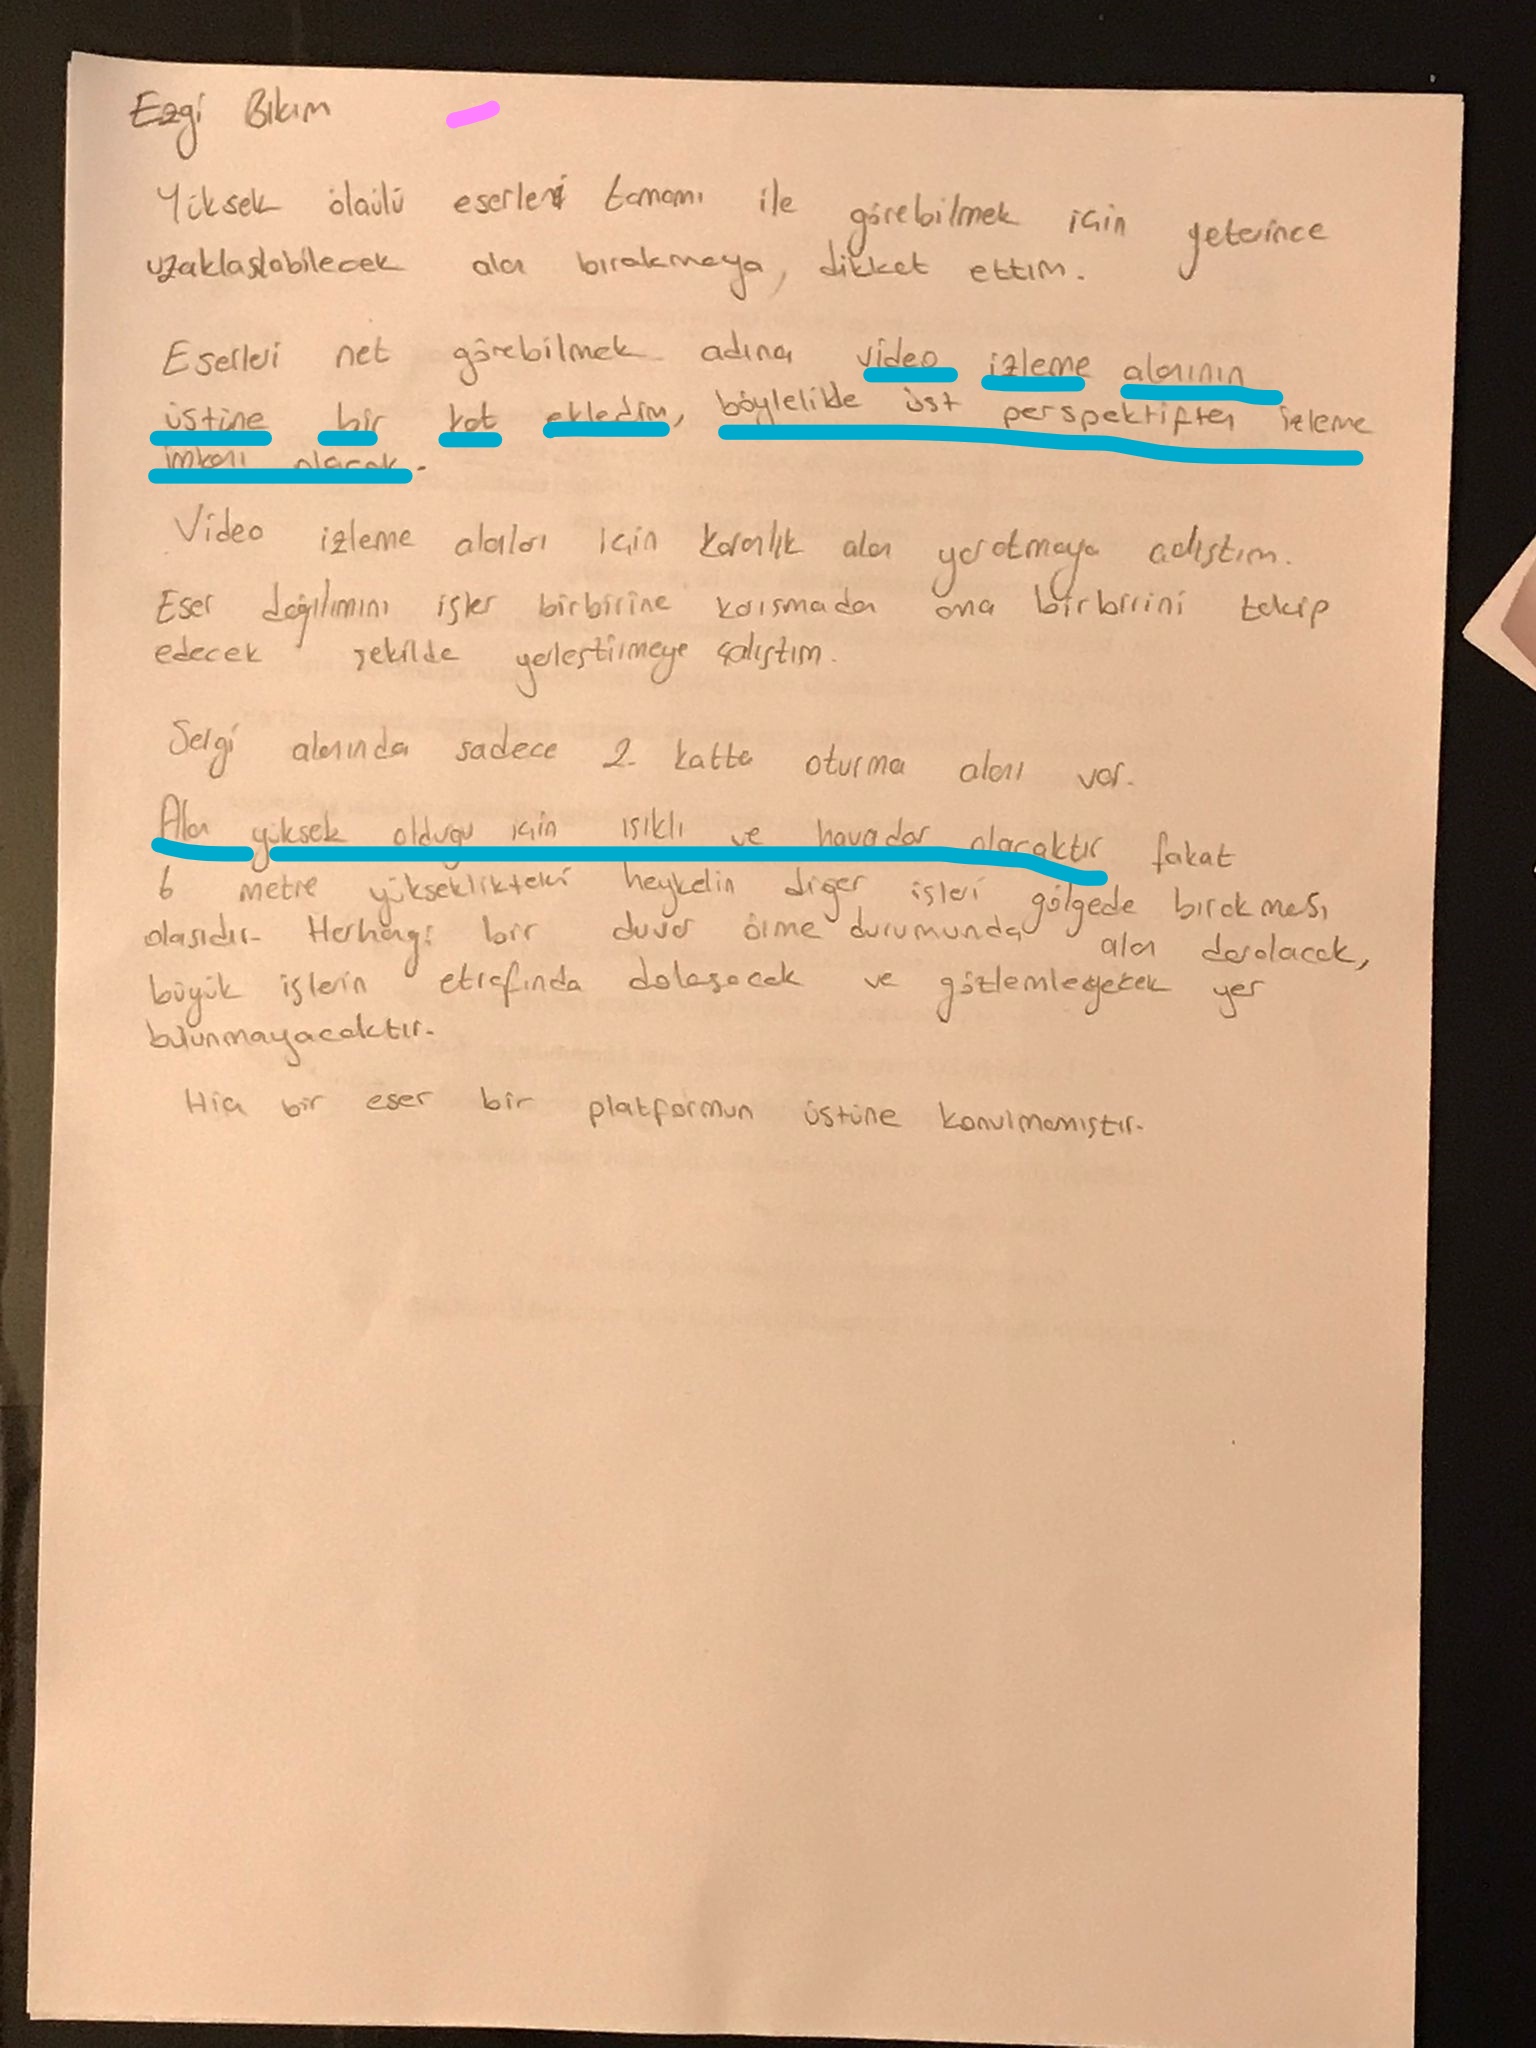 Ezgi Bıkım
Yüksek ölçülü eserleri tamamı ile görebilmek için yeterince
uzaklaşılabilecek alan bırakmaya, dikket ettim.
Eserleri net görebilmek adına video izleme alanının
üstüne bir kot ekledim, böylelikle üst perspektiften izleme
imkanı olacak.
Video izleme alanları için karanlık alan yaratmaya çalıştım.
Eser dağılımını işler birbirine karışmadan ama birbirini takip
edecek şekilde yerleştirmeye çalıştım.
Sergi alanında sadece 2. katta oturma alanı var.
Alan yüksek olduğu için ışıklı ve havadar olacaktır fakat
6 metre yükseklikteki heykelin diğer işleri gölgede bırakması
olasıdır. Herhangi bir duvar örme durumunda alan daralacak,
büyük işlerin etrafında dolaşacak ve gözlemleyecek yer
bulunmayacaktır.
Hiç bir eser bir platformun üstüne konulmamıştır.